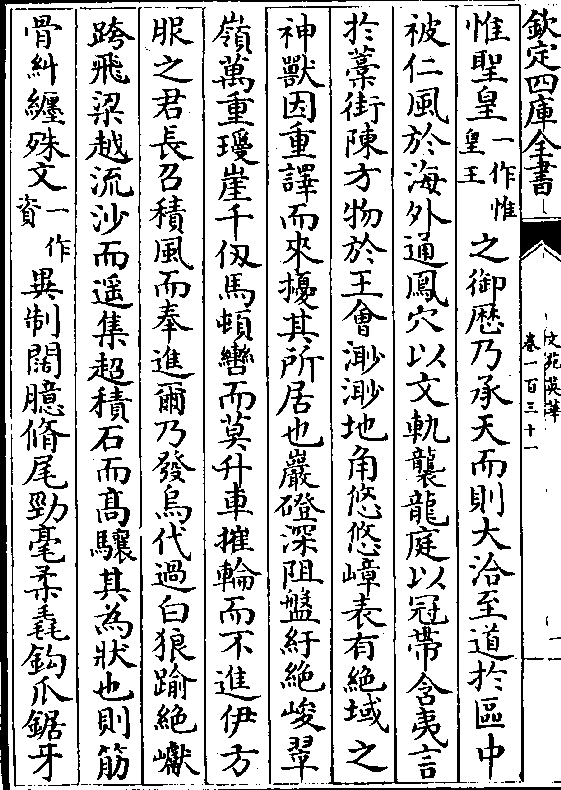 欽定四庫全書
文苑英華
卷一百三十一
一
惟聖皇一作惟皇王之御厯乃承天而則大洽至道於區中
被仁風於海外通鳳穴以文軌襲龍庭以冠帶含夷言
於藁街陳方物於王會渺渺地角悠悠嶂表有絶域之
神獸因重譯而來擾其所居也巖磴深阻盤紆絶峻翠
嶺萬重瓊崖千仭馬頓轡而莫升車摧輪而不進伊方
服之君長召積風而奉進爾乃發烏代過白狼踰絶巘
跨飛梁越流沙而遥集超積石而髙驤其為狀也則筋
骨糾纏殊文一作資異制闊臆脩尾勁毫柔毳鈎爪鋸牙